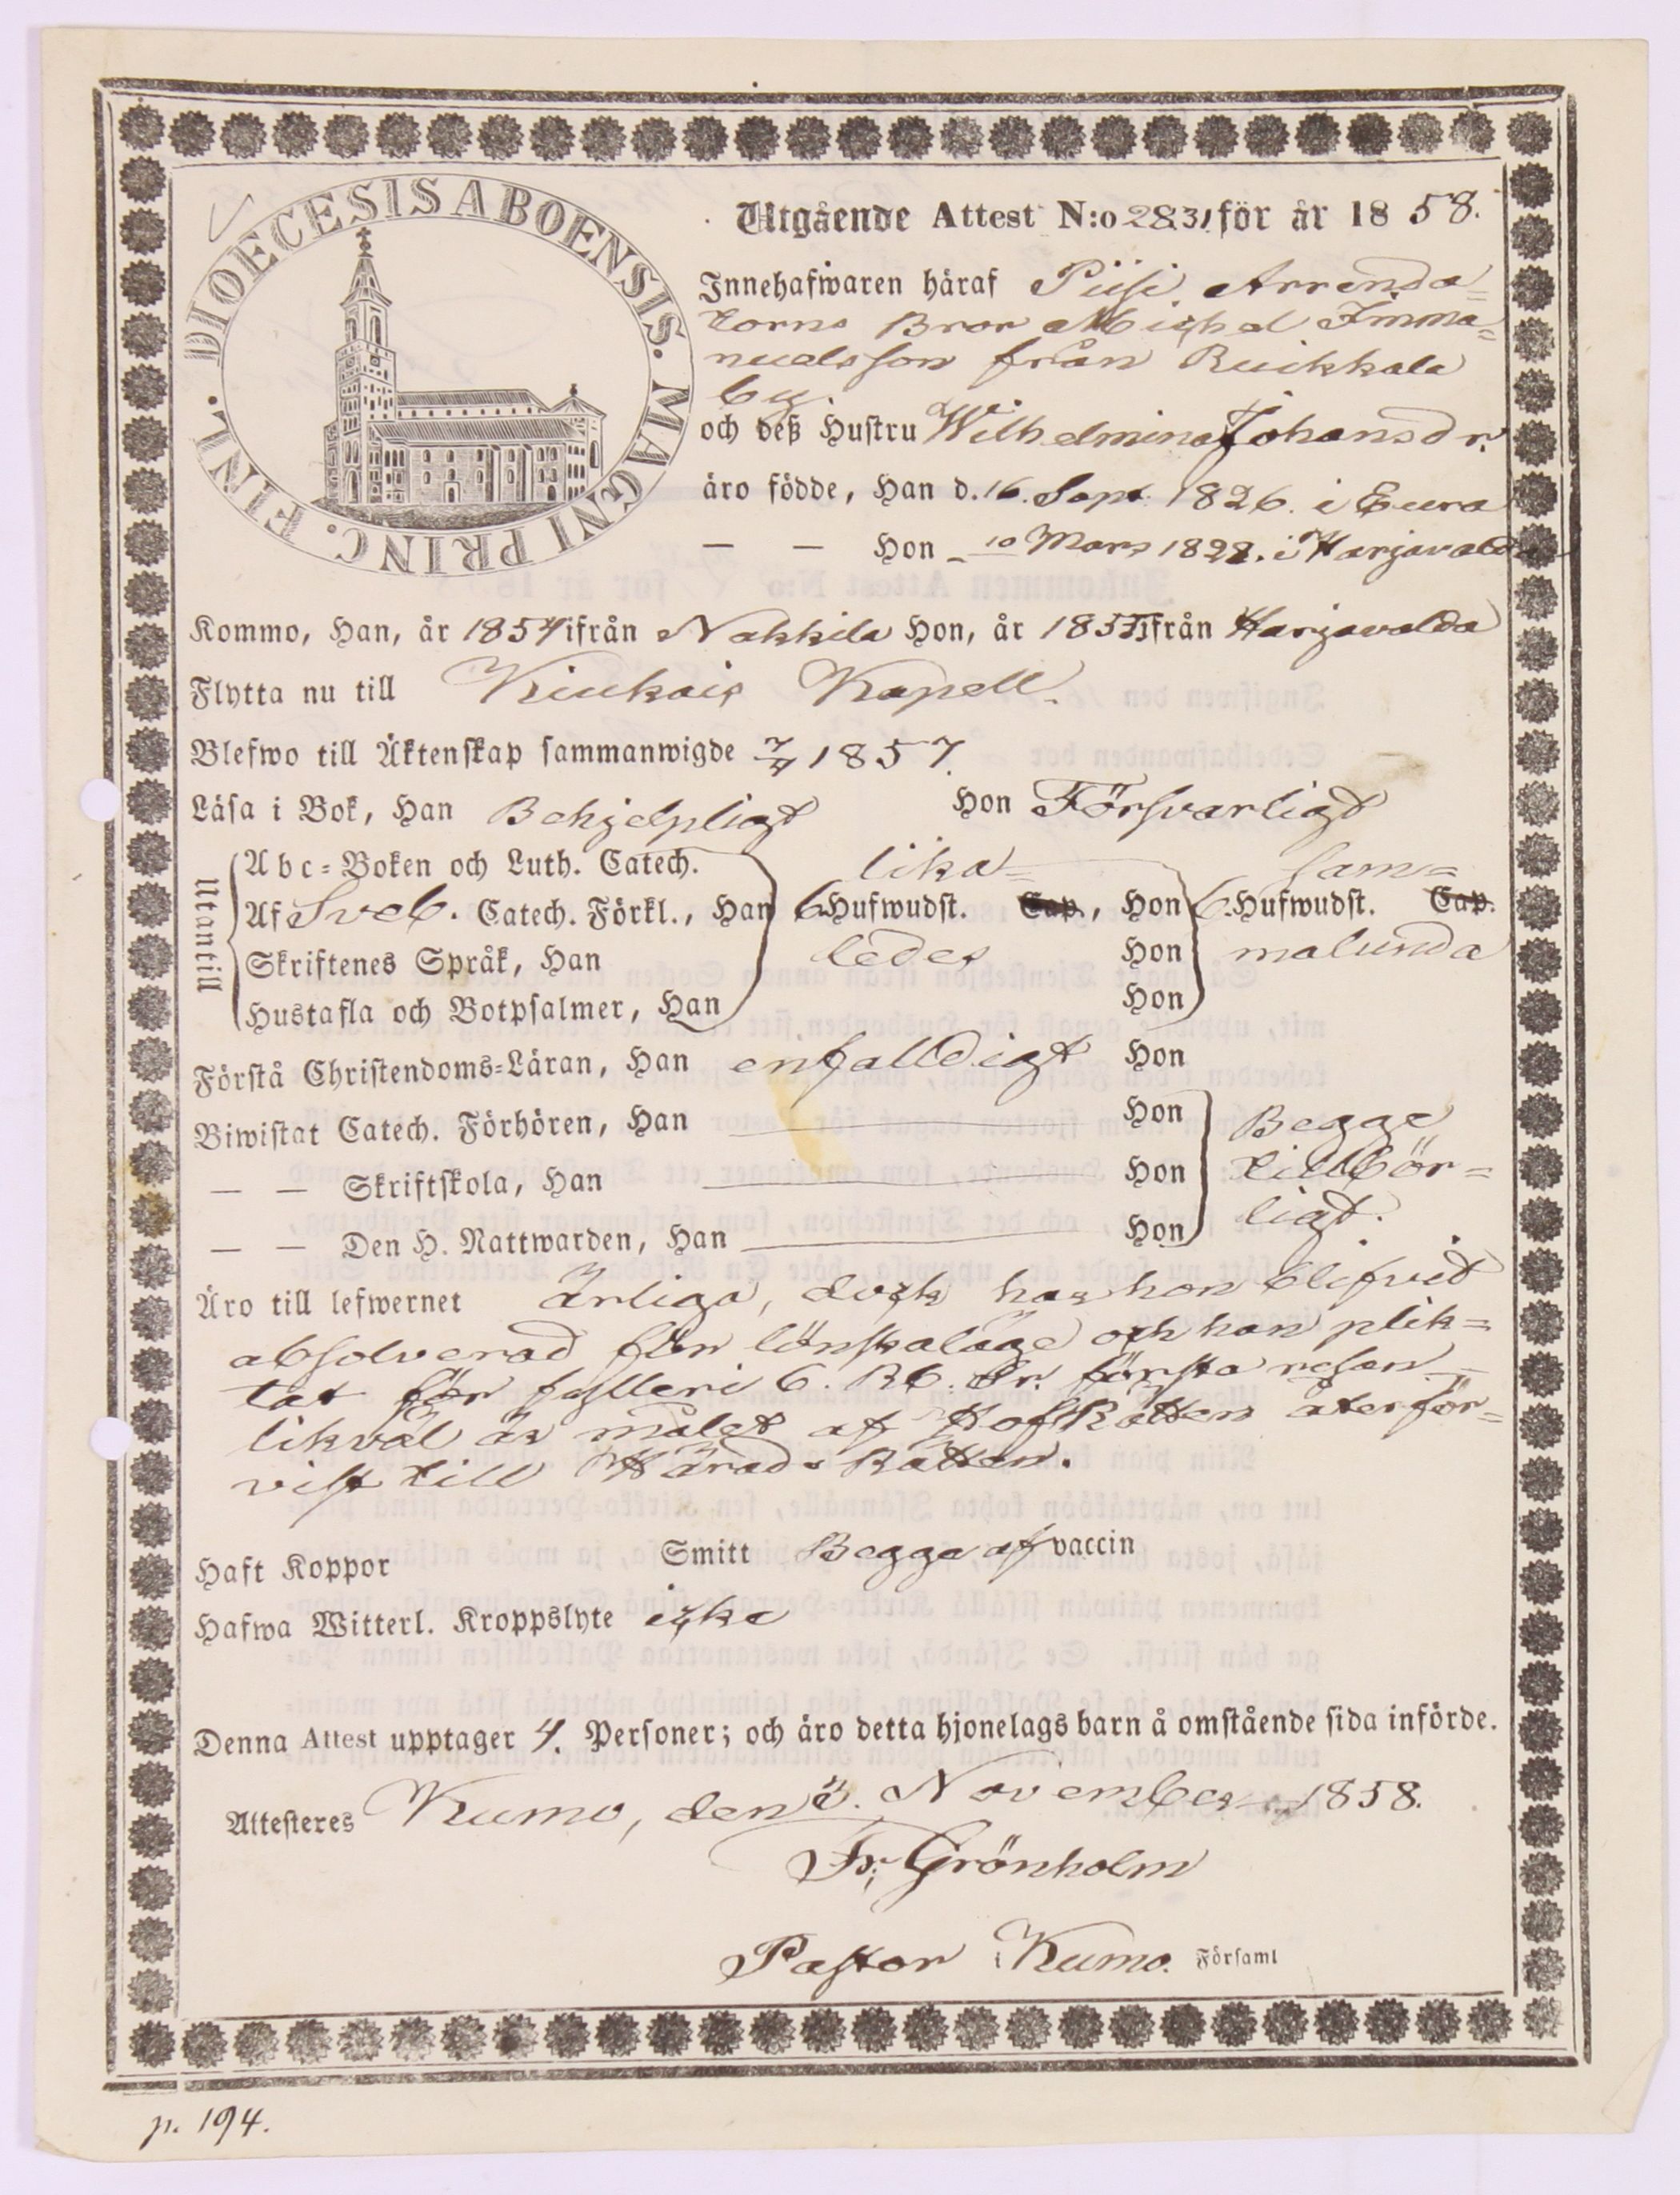 DIOECESIS ABOENSIS. MAGNI PRINC. FINL.
Utgående Attest N:o 283 för år 1858.
Innehafwaren häraf Piisi Arrenda=
torns Bror Michel Imma=
nuelsson från Ruikkala
by.
och deß Hustru Wilhelmina Johansdr.
äro födde, Han d. 16. Sept. 1826. i Eura
— — Hon - 10 Mars 1828. i Harjavalda
Kommo, Han, år 1854 ifrån Nakkila Hon, år 1855 ifrån Harjavalda
Flytta nu till Kiukais Kapell.
Blefwo till Äktenskap sammanwigde 7/4 1857.
Läsa i Bok, Han Behjelpligt Hon Försvarligt
Utantill
Abc=Boken och Luth. Catech. lika= sam=
Af Sveb. Catech. Förkl., Han 6 Hufwudst. Cap., Hon 6. Hufwudst. Cap.
Skriftenes Språk, Han ledes Hon malunda
Hustafla och Botpsalmer, Han Hon
Förstå Christendoms=Läran, Han enfalldigt Hon
Biwistat Catech. Förhören, Han Hon Begge
— — Skriftskola, Han Hon tillbör=
— — Den H. Nattwarden, Han Hon ligt.
Äro till lefwernet ärliga, dock har hon blifvit
absolverad för lönskaläge och han plik=
tat för fylleri 6. Rb. Sr. första resan
likväl är målet af HofRätten återför=
vist till HäradsRätten.
Haft Koppor Smitt Begge af vaccin
Hafwa Witterl. Kroppslyte icke
Denna Attest upptager 4. Personer; och äro detta hjonelags barn å omstående sida införde.
Attesteres Kumo, den 2. November 1858.
Fr. Grönholm
Pastor i Kumo. Församl
p. 194.